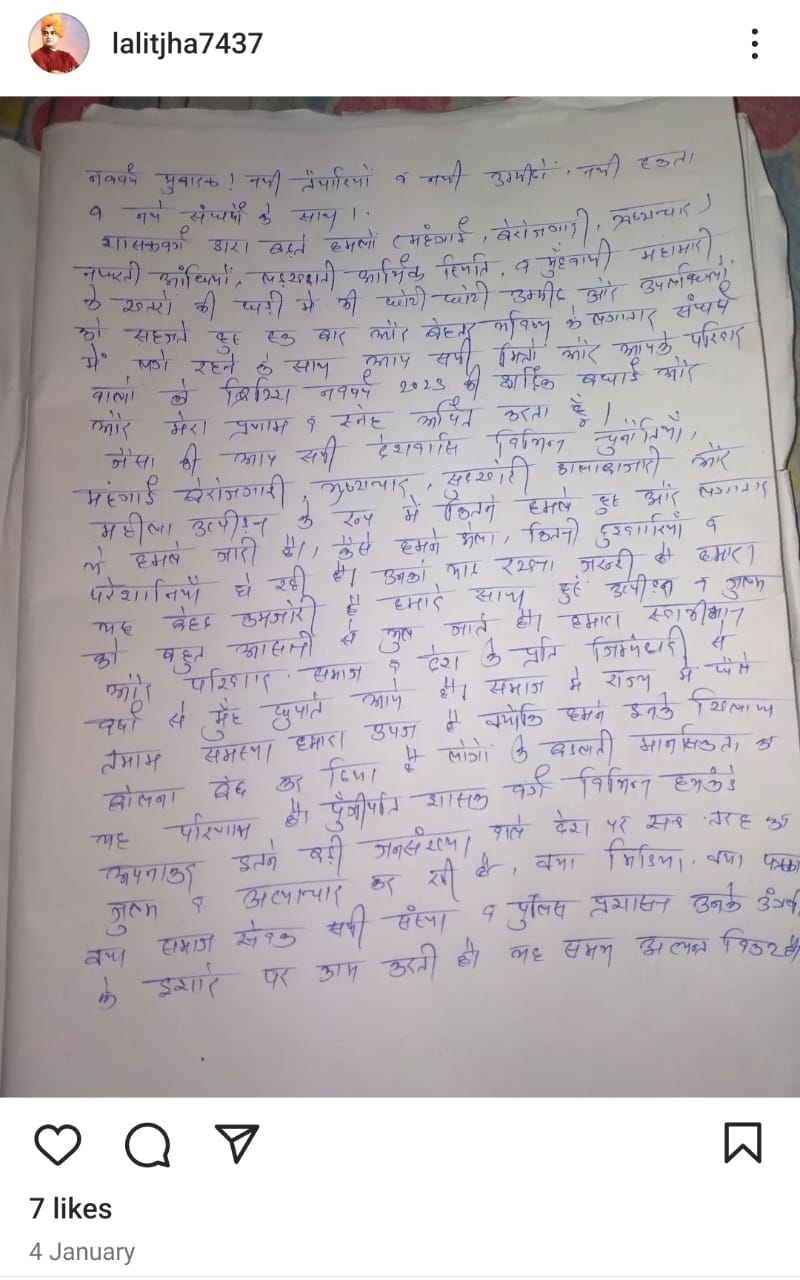 lalitjha7437
नववर्ष मुबारक! नयी तैयारियों व नयी उम्मीदों, नयी एकता
व नये संघर्षों के साथ।
शासकवर्ग द्वारा बढ़ते हमलों (महंगाई, बेरोजगारी, भ्रष्टाचार)
नफरती आंधियों, लड़खड़ाती आर्थिक स्थिति, व मुँहबायी महामारी
के खतरों की घड़ी में भी छोटी छोटी उम्मीद और उपलब्धियों
को सहजते हुए एक बार और बेहतर भविष्य के लगातार संघर्ष
में लगे रहने के साथ आप सभी मित्रों और आपके परिवार
वालों को नववर्ष 2023 की हार्दिक बधाई और
और मेरा प्रणाम व स्नेह अर्पित करता हूँ।
जैसा की आप सभी देशवासि विभिन्न चुनौतियाँ,
महंगाई बेरोजगारी, भ्रष्टाचार, सूदखोरी कालाबाजारी और
महीला उत्पीड़न के रूप में कितने हमले हुए और लगातार
ये हमले जारी है।, कैसे हमने झेला, कितनी दुश्वारियाँ व
परेशानियाँ हो रही है। उनको याद रखना जरूरी है हमारा
यह बेहद कमजोरी है हमारे साथ हुए उत्पीड़न व जुल्म
को बहुत आसानी से भुल जाते है। हमारा स्वाभीमान
और परिवार समाज व देश के प्रति जिम्मेदारी से
वर्षों से मुँह छुपाते आये है। समाज मे राज्य मे फैले
तमाम समस्या हमारा उपज है क्योकि हमने इनके खिलाफ
बोलना बंद कर दिया है लोगो के बदलती मानसिकता का
यह परिणाम है। पूँजीपति शासक वर्ग विभिन्न हथकंडे
अपनाकर इतने बड़ी जनसंख्या वाले देश पर सब तरह का
जुल्म व अत्याचार कर रही है, क्या मिडिया, क्या
क्या समाज सेवक सभी संस्था व पुलिस प्रशासन उनके
के इशारे पर काम करती है। यह समय अत्यन्त विकट है।
7 likes
4 January